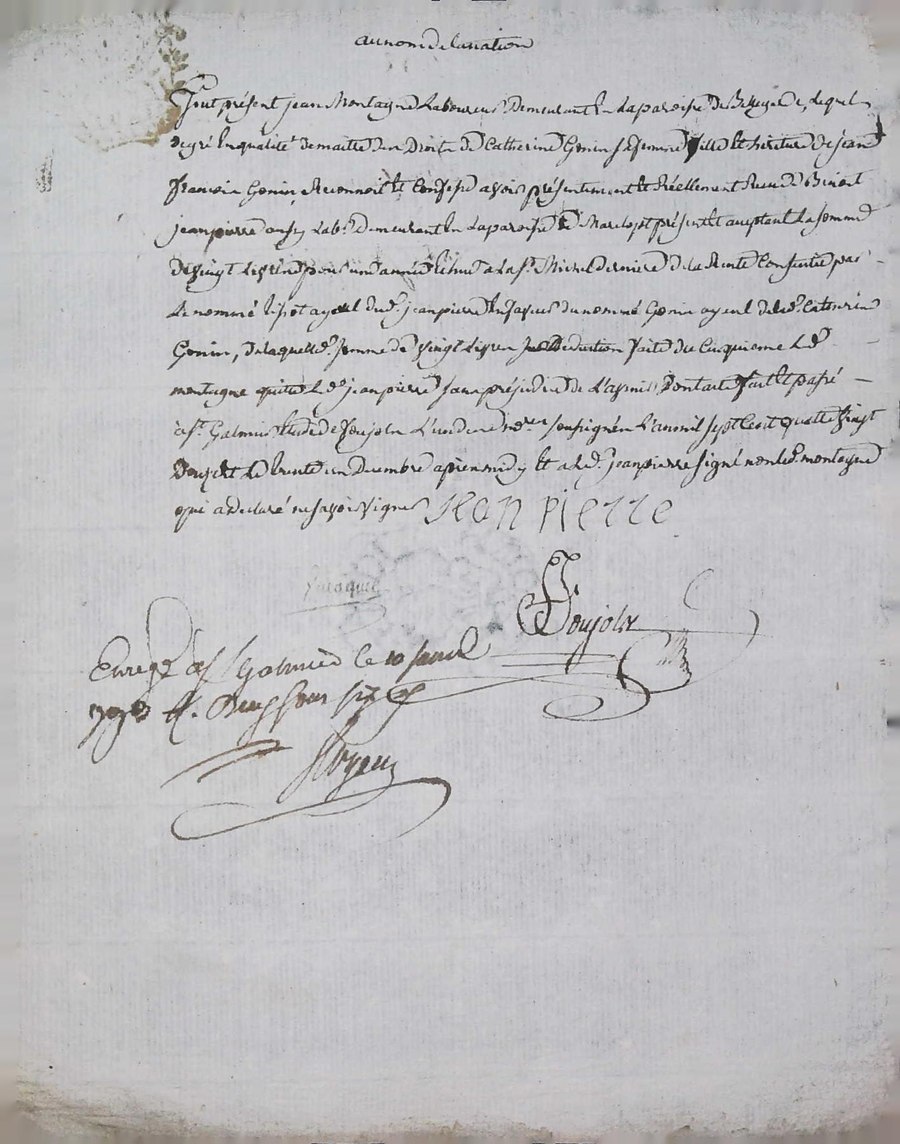 au nom de la nation
Fut présent jean Montagne Laboureur demeurant En La paroisse de Bellegarde, lequel
de gré En qualité de maitre des Droits de Catherine Gonin sa femme fille Et heritiere de jean
francois Gonin, Reconnoit Et Confesse avoir présentement Et Réellement Recu de Benoit
jean pierre aussy Lab.r demeurant En La paroisse de présent Et aceptant La somme
de vingt Livres pour une année Echue a La s.t Michel derniere de la Rente Consentie par
Le nommé ayeul dud. jean pierre En faveur du nommé Gonin ayeul de lad. Catherine
Gonin, de laquelle somme de vingt Livres déduction faite du Cinquieme Led.
montagne quitte Led. jean pierre sans préjudice de L'avenir Dont acte fait Et passé
a s.t Galmier Etude de Poujols L'un des no.res soussignés L'an mil sept Cent quatre vingt
Douze Et Le trente un decembre apres midy Et a Led. jean pierre signé non led. montagne
qui a declaré ne savoir signer Jean Pierre
Poujols
Enreg.é a s.t Galmier le 10 janvier
1793 R. Quinze sous six